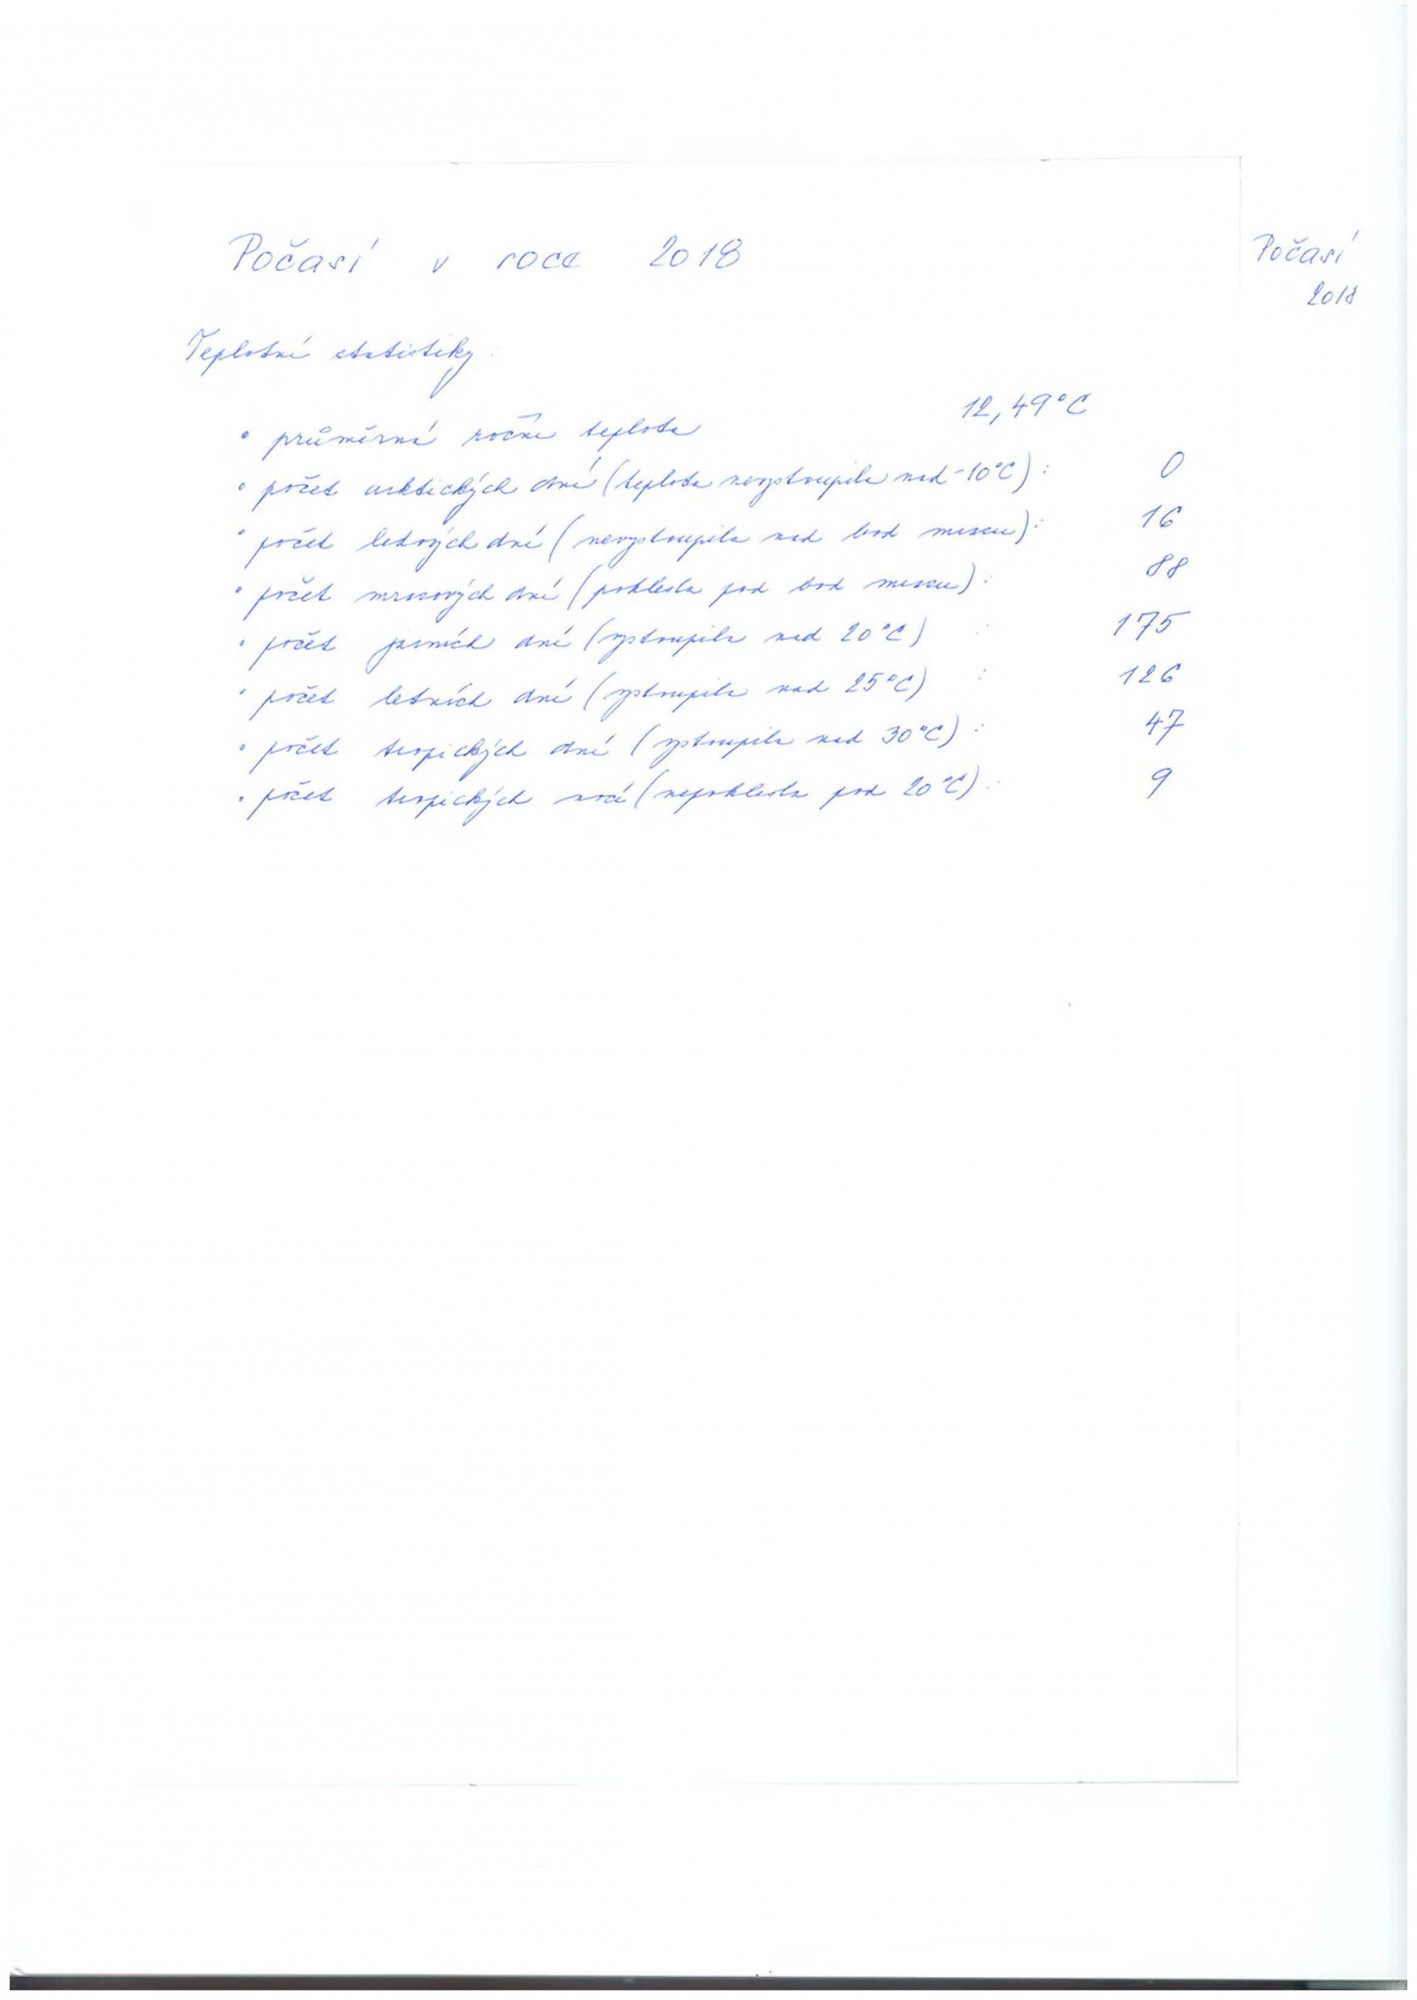 Počasí v roce 2018
Počasí
2018
Teplotní statistiky:
• průměrná roční teplota 12,49°C
• počet arktických dní (teplota nevystoupila nad -10°C): 0
• počet ledových dní (nevystoupila nad bod mrazu): 16
• počet mrazových dní (poklesla pod bod mrazu): 88
• počet jarních dní (vystoupila nad 20°C) : 175
• počet letních dní (vystoupila nad 25°C) : 126
• počet tropických dní (vystoupila nad 30°C): 47
• počet tropických nocí (nepoklesla pod 20°C): 9